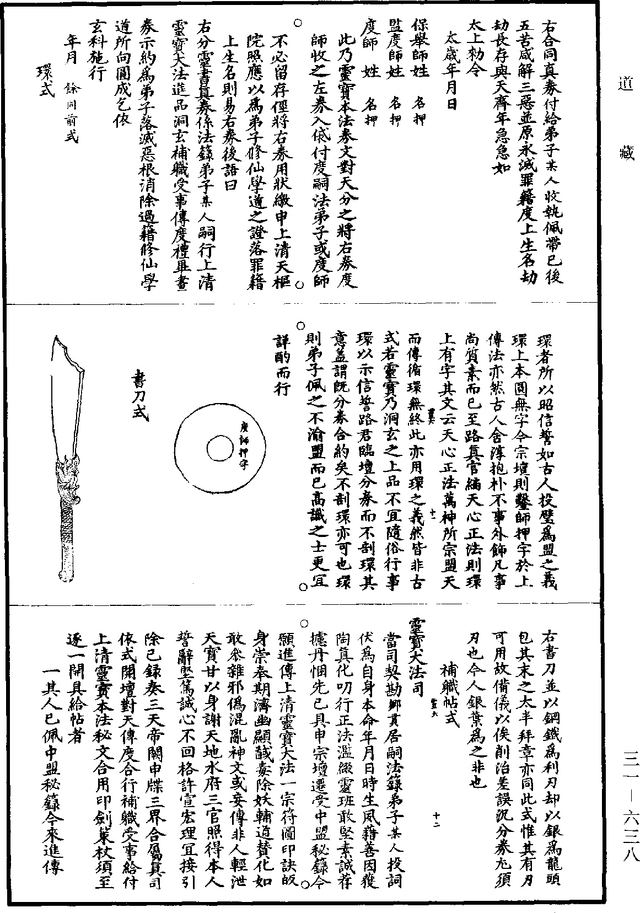 道藏
右合同真券付給弟子某人收執佩帶已後
五苦咸解三惡並原永滅罪籍度上生名劫
劫長存與天齊年急急如
太上勑令
太歲年月日
保舉師姓 名押
監度師姓 名押
度師 姓 名押
此乃靈寶本法券文對天分之將右券度
師收之左券入袋付度嗣法弟子或度師
不必留存徑將右券用狀繳申上清天樞
院照應以為弟子修仙學道之證落罪籍
上生名則易右券後語曰
右分靈書真券係法籙弟子某人嗣行上清
靈寶大法進品洞玄補職受事傳度禮畢晝
券示約為弟子落滅惡根消除過籍修仙學
道所向圓成乞依
玄科施行
年月 餘同前式
環式
環者所以昭信誓如古人投璧為盟之義
環上本圓無字今宗壇則鑿師押字於上
傳法亦然古人含淳抱朴不事外飾凡事
尚質素而已至路真官編天心正法則環
上有字其文云天心正法萬神所宗盟天
而傳循環無終此亦用環之義然皆非古
式若靈寶乃洞玄之上品不宜隨俗行事
環以示信誓路君臨壇分券而不剖環其
意蓋謂既分券合約矣不剖環亦可也環
則弟子佩之不渝盟而已高識之士更宜
詳酌而行
度師押字
書刀式
右書刀並以鋼鐵為利刃却以銀為龍頭
包其末之太半拜章亦同此式惟其有刃
可用故備儀以俟削治差誤況分券尤須
刃也今人銀葉為之非也
補職帖式
十二
靈寶大法司
當司契勘鄉貫居嗣法籙弟子某人投詞
伏為自身本命年月日時生夙藉善因獲
陶真化叨行正法濫綴靈班敢堅素誠荐
攄丹悃先已具申宗壇遷受中盟秘籙今
願進傳上清靈寶大法一宗符圖印訣皈
身崇奉期濟幽顯誠毒除妖輔道替化如
敢參雜邪偽混亂神文或妄傳非人輕泄
天寶甘以身謝天地水府三官照得本人
誓辭堅篤誠心不回格許宣宏理宜接引
除已錄奏三天帝闕申牒三界合屬真司
依式開壇對天傳度合行補職受事給付
上清靈寶本法秘文合用印劍策杖須至
逐一開具給帖者
一其人已佩中盟秘籙今來進傳
三一—六三八